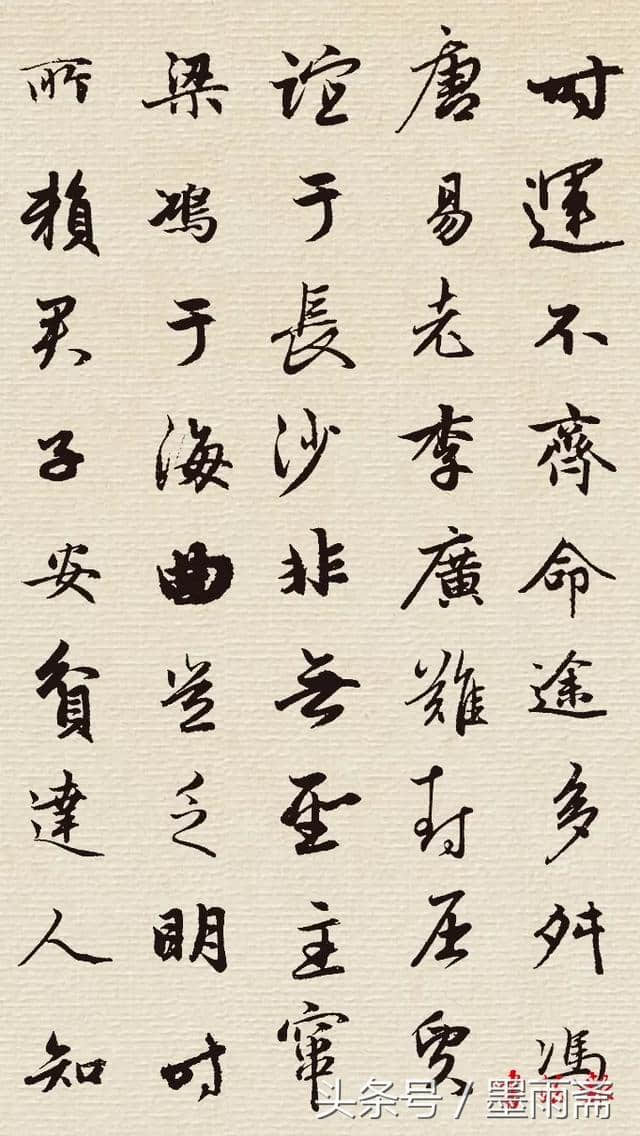 时運不齊命途多舛馮
唐易老李廣難封屈賈
誼于長沙非無聖主竄
梁鴻于海曲豈乏明時
所賴君子安貧達人知
头条号／墨雨斋